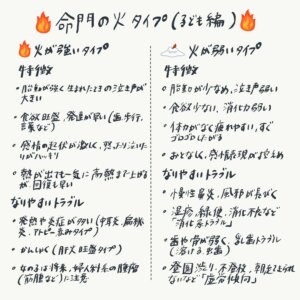 命門の火タイプ(子ども編)
火が強いタイプ
特徴
・胎動が強く生まれたときの泣き声が
大きい
・食欲旺盛、発達が早い(歯、歩行、
言葉など)
・感情の起伏が激しく、怒より泣いた
りがハッキリ
・熱が出ても一気に高熱まで上がる
が、回復も早い
なりやすいトラブル
・発熱や炎症が多い(中耳炎、扁桃
炎、アトピー赤みタイプ)
・かんしゃく(肝火旺盛タイプ)
・女の子は将来、婦人科系の腫瘤
(筋腫など)に注意
火が弱いタイプ
特徴
・胎動が少なめ、泣き声弱い
・食欲少ない、消化力弱い
・体力がなく疲れやすい、すぐ
ゴロゴロしたがる
・おとなしく、感情表現が控えめ
なりやすいトラブル
・慢性鼻炎、風邪が長びく
・湿疹、軟便、消化不良など
「消化系トラブル」
・歯や骨が弱く、乳歯トラブル
(溶ける、虫歯)
・登園渋り、不登校、朝起きられ
ないなど「虚労傾向」